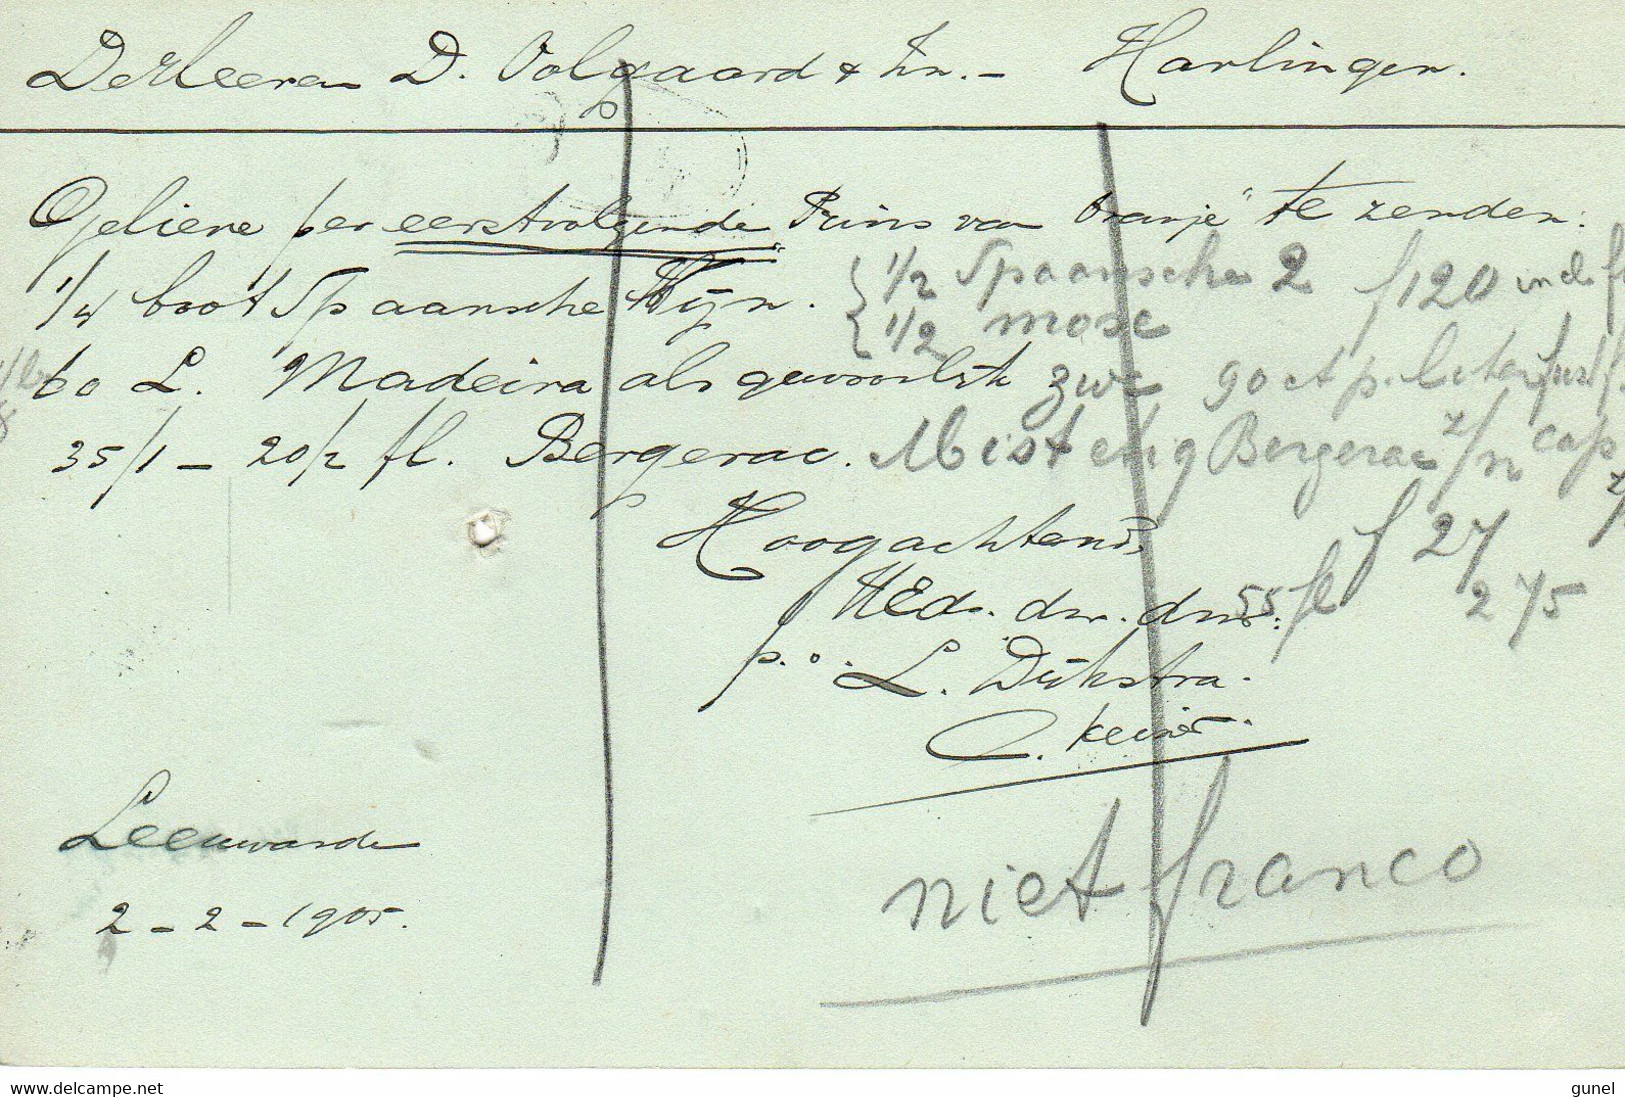 De Heeren D. Volgaard & Zn. - Harlingen.
Geliene per eerstvolgende "Prins van Oranje" te zenden:
1/4 boot Spaansche Wijn. { 1/2 Spaansche 2 f 120 incl f
1/2 mose
60 L. Madeira als gewoonlijk zwc goet p.
35/1 - 20/2 fl. Bergerac. Bergerac z/n cap
Hoogachtend, f 27
UEd. dw. dnr. 55 fl 275
p.o. L. Dijkstra.
C. Keizer.
Leeuwarden
2-2-1905.
niet franco
delcampe.net
gunel